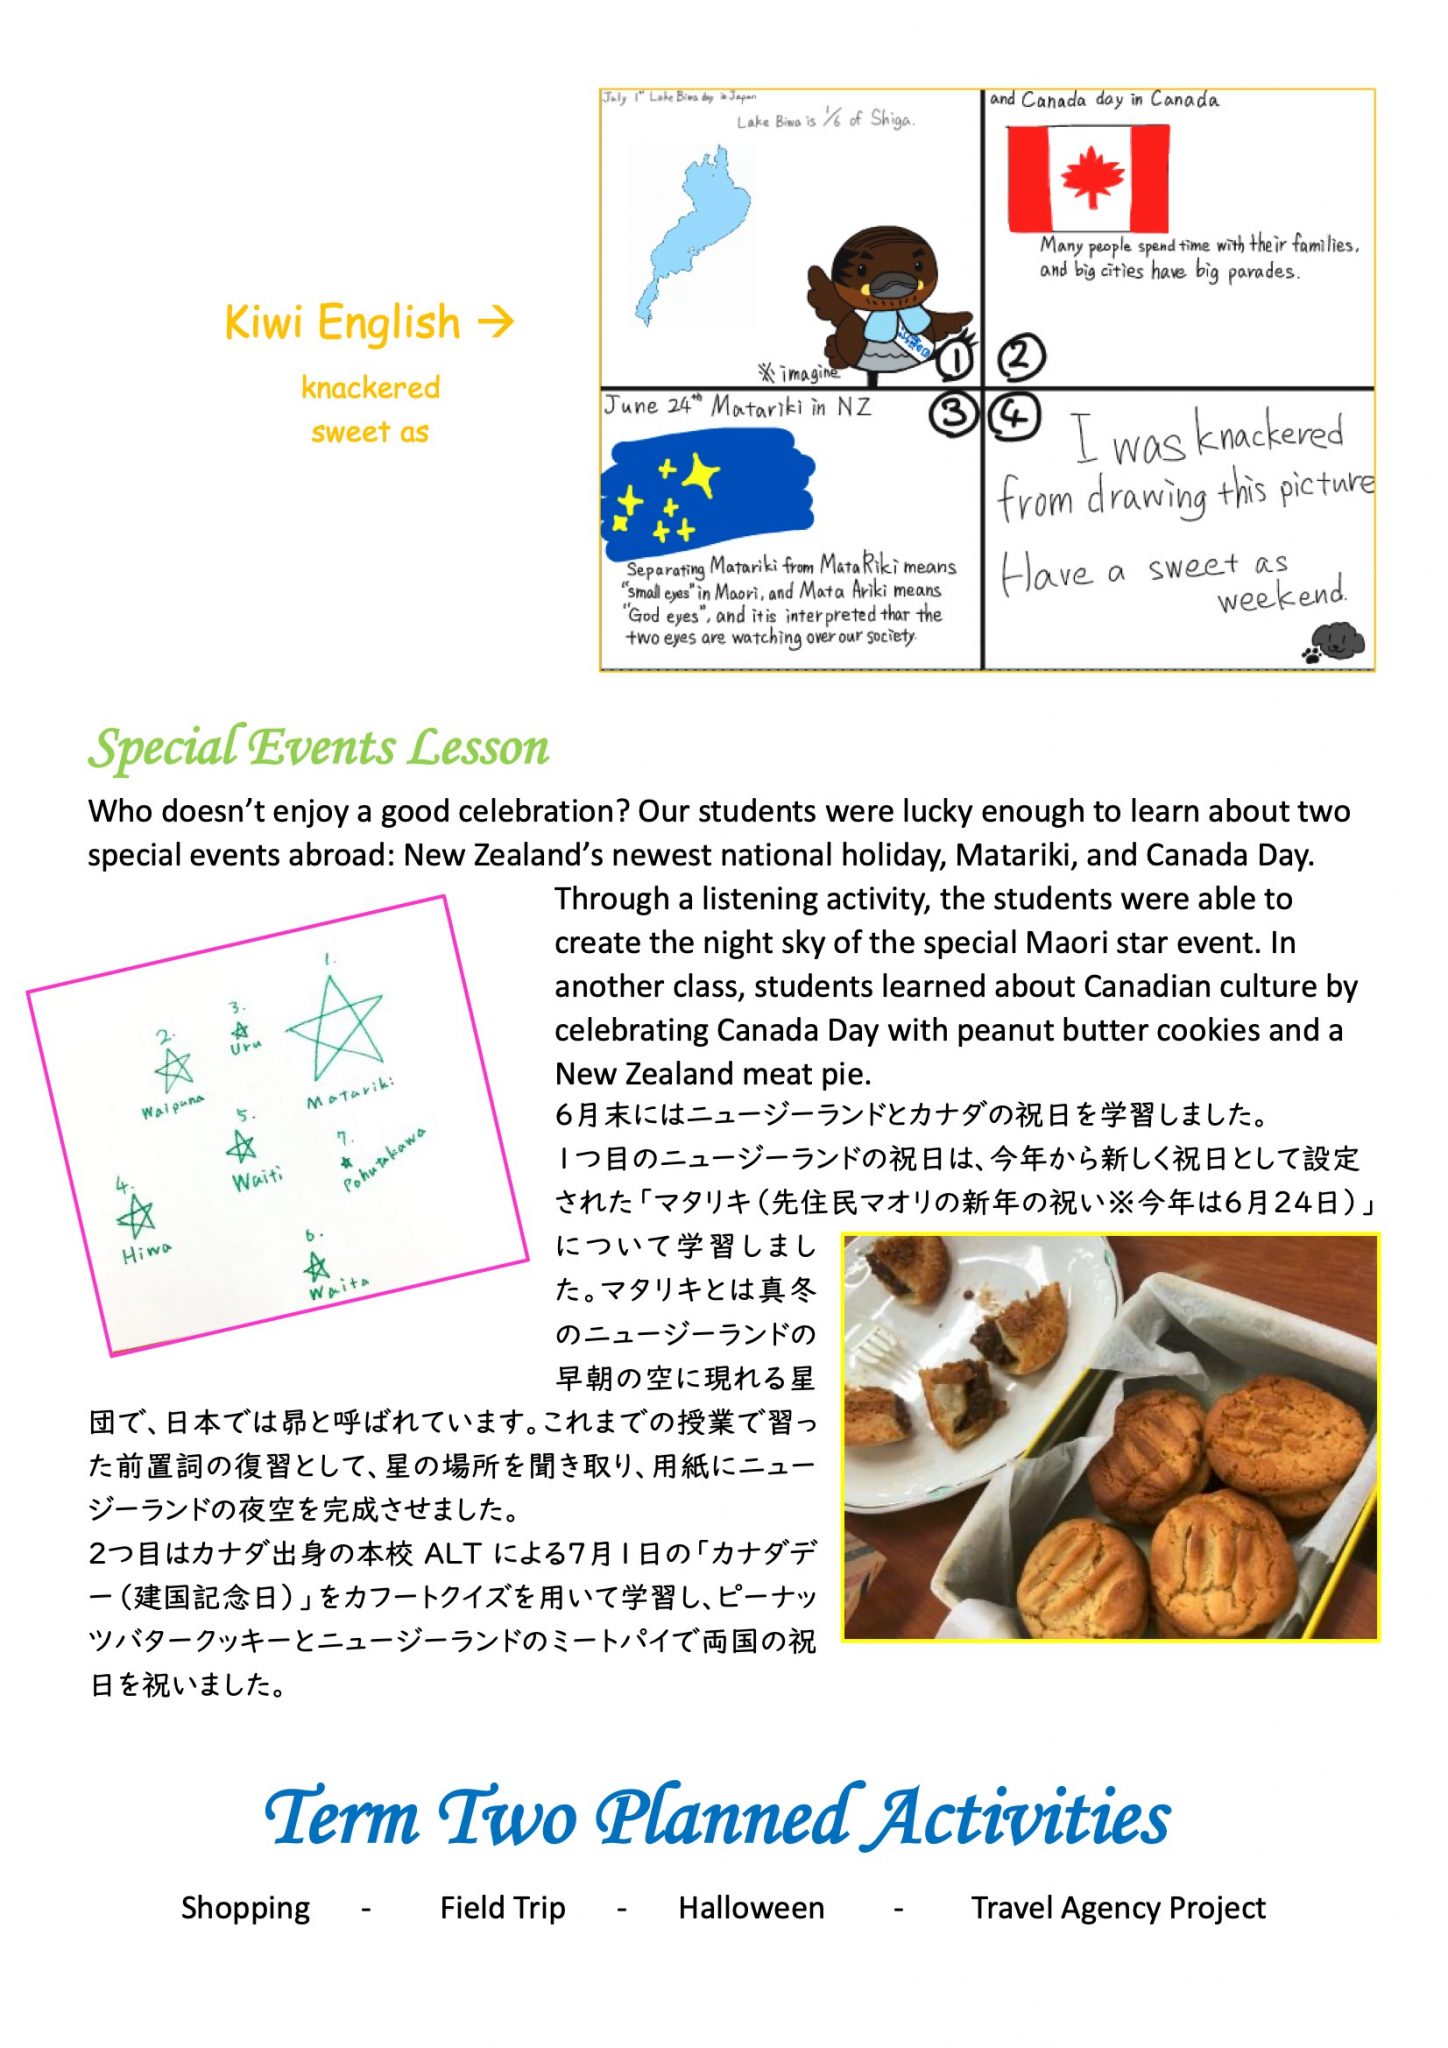 Kiwi English →
knackered
sweet as
July 1st Lake Biwa day in Japan
Lake Biwa is 1/6 of Shiga.
※ imagine
①
and Canada day in Canada
Many people spend time with their families,
and big cities have big parades.
②
June 24th Matariki in NZ
③
Separating Matariki from MataRiki means
"small eyes" in Maori, and Mata Ariki means
"God eyes", and it is interpreted thar the
two eyes are watching over our society.
④
I was knackered
from drawing this picture
Have a sweet as
weekend.
Special Events Lesson
Who doesn’t enjoy a good celebration? Our students were lucky enough to learn about two
special events abroad: New Zealand’s newest national holiday, Matariki, and Canada Day.
Through a listening activity, the students were able to
create the night sky of the special Maori star event. In
another class, students learned about Canadian culture by
celebrating Canada Day with peanut butter cookies and a
New Zealand meat pie.
1.
Matariki
2.
Waipuna
3.
Uru
4.
Hiwa
5.
Waiti
6.
Waita
7.
Pohutukawa
6月末にはニュージーランドとカナダの祝日を学習しました。
1つ目のニュージーランドの祝日は、今年から新しく祝日として設定
された「マタリキ（先住民マオリの新年の祝い※今年は6月24日）」
について学習しまし
た。マタリキとは真冬
のニュージーランドの
早朝の空に現れる星
団で、日本では昴と呼ばれています。これまでの授業で習っ
た前置詞の復習として、星の場所を聞き取り、用紙にニュー
ジーランドの夜空を完成させました。
2つ目はカナダ出身の本校 ALT による7月1日の「カナダデ
ー（建国記念日）」をカフートクイズを用いて学習し、ピーナッ
ツバタークッキーとニュージーランドのミートパイで両国の祝
日を祝いました。
Term Two Planned Activities
Shopping - Field Trip - Halloween - Travel Agency Project